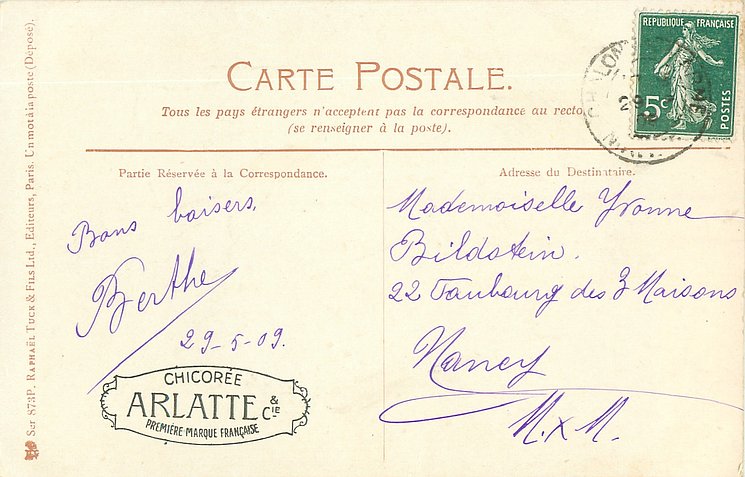 RÉPUBLIQUE FRANÇAISE
5c
POSTES
CARTE POSTALE.
Tous les pays étrangers n'acceptent pas la correspondance au recto
(se renseigner à la poste).
Partie Réservée à la Correspondance.
Bons baisers,
Berthe
29-5-09.
CHICORÉE
ARLATTE & CIE
PREMIÈRE MARQUE FRANÇAISE
Adresse du Destinataire.
Mademoiselle Yvonne
Bildstein.
22 Faubourg des 3 Maisons
Nancy
M.x M.
Ser 873P. RAPHAËL TUCK & FILS LTD., Editeurs, Paris. Un mot à la poste (Déposé).